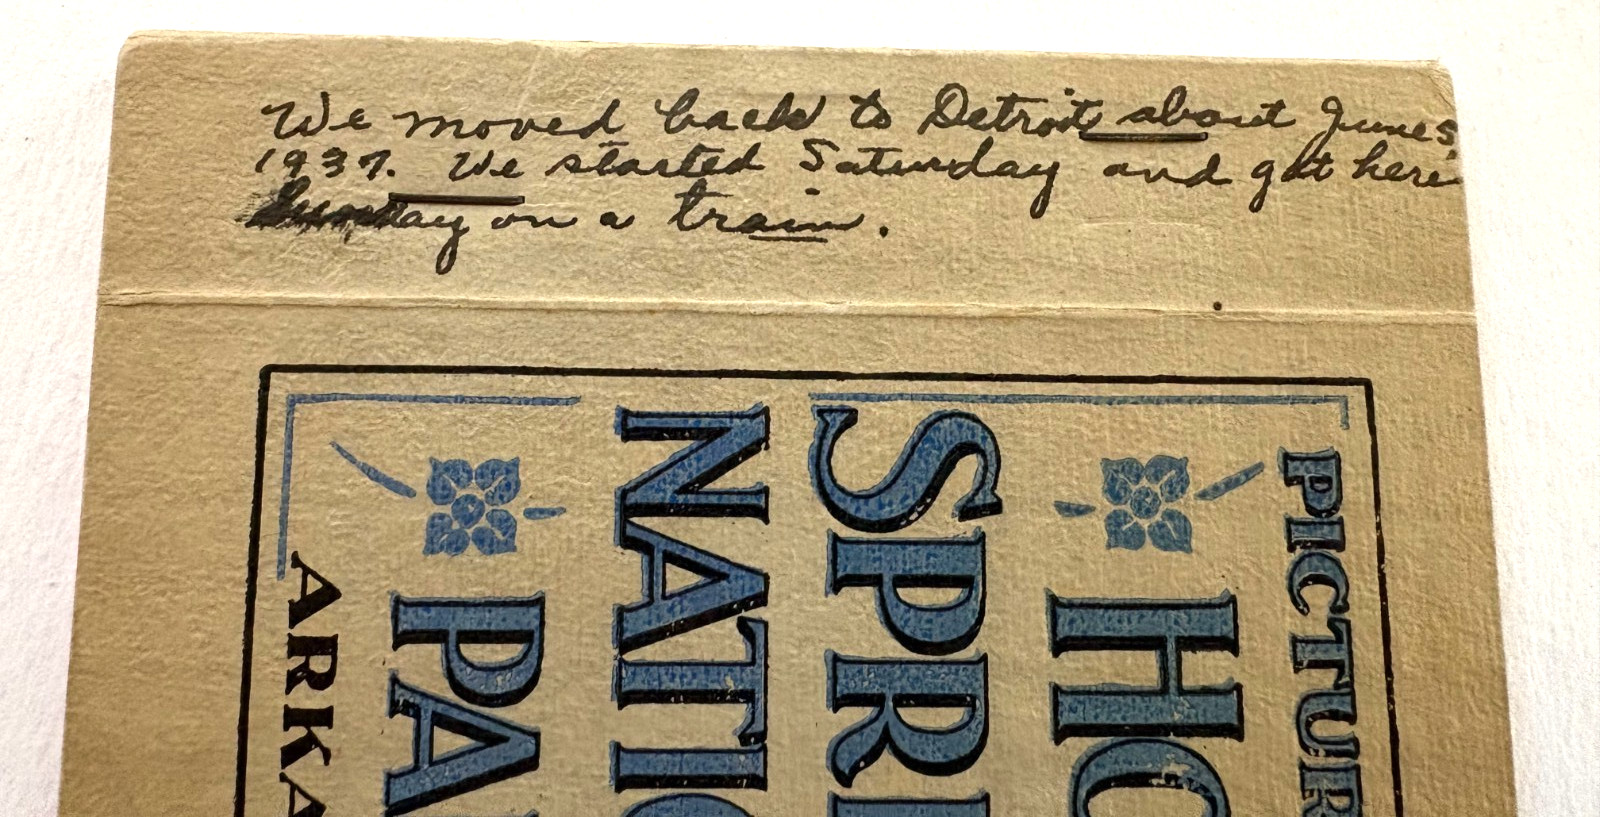 We moved back to Detroit about June 5,
1937. We started Saturday and got here
Sunday on a train.
PICTUR
HO
SPRI
NATIO
PA
ARKA